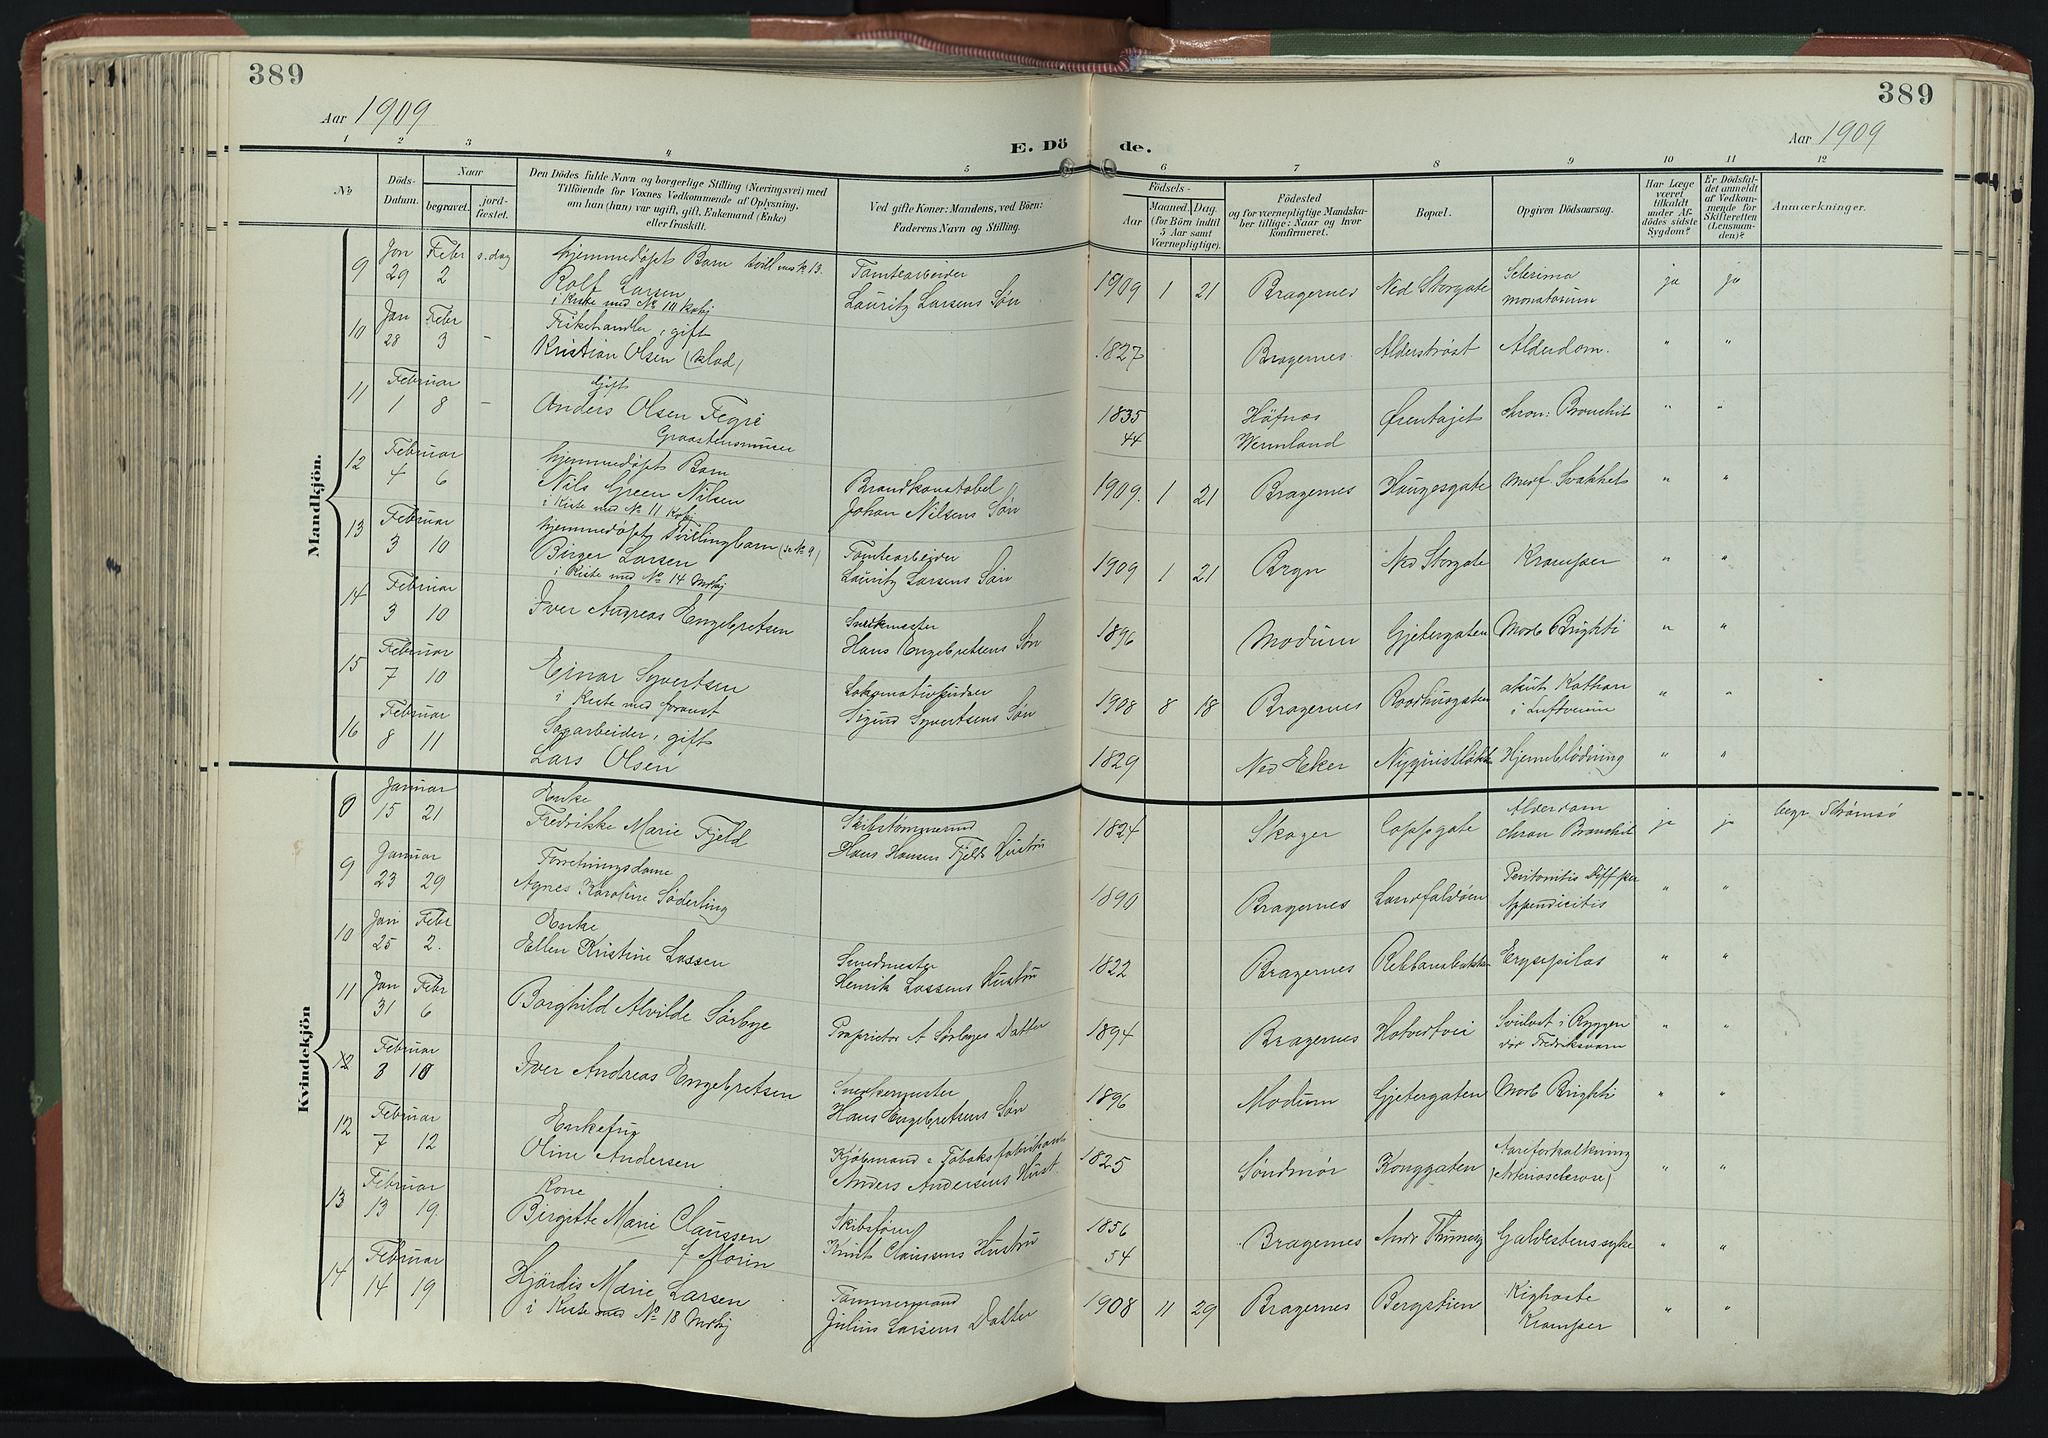 389
389
Aar 1909
E. Dö de.
Aar 1909
1 2 3 4 5 6 7 8 9 10 11 12
No
Döds-Datum.
Naar
begravet.
jord-fæstet.
Den Dödes fulde Navn og borgerlige Stilling (Næringsvei) med
Tilföiende for Voxnes Vedkommende af Oplysning,
om han (hun) var ugift, gift, Enkemand (Enke)
eller fraskilt.
Ved gifte Koner: Mandens, ved Börn:
Faderens Navn og Stilling.
Födsels-
Aar
Maaned.
Dag.
(for Börn indtil
5 Aar samt
Værnepligtige).
Födested
og for værnepligtige Mandska-
ber tillige: Naar og hvor
konfirmeret.
Bopæl.
Opgiven Dödsaarsag.
Har Læge
været
tilkaldt
under Af-
dödes sidste
Sygdom?
Er Dödsfal-
det anmeldt
af Vedkom-
mende for
Skifteretten
(Lensman-
den)?
Anmærkninger.
Mandkjön.
9 Jan 29 Febr 2 s. dag hjemmedøpt Barn tvill. m. No 13.
Rolf Larsen Tomtearbeider
i Kiste med No 10 Lauritz Larsens Søn 1909 1 21 Bragernes Ned Storgate ja ja
10 Jan 28 Febr 3 - gift
Kristian Olsen 1827 Bragernes Alderstrøst Alderdom. " "
11 Februar 1 8 - Gift
Anders Olsen 1835 44 Wermland chron: Bronchit " "
12 Februar 4 6 hjemmedøpt Barn
Nils Green Nilsen Brandkonstabel
i Kiste med No 11 Johan Nilsens Søn 1909. 1 21 Bragernes Haugesgate Svakhet " "
13 Februar 3 10 hjemmedøpt Tvillingbarn (se No 9)
Birger Larsen Tomtearbeider
i Kiste med No 14 Lauritz Larsens Søn 1909 1 21 Brgn Ned Storgate Kramper " "
14 Februar 3 10 Iver Andreas Engebretsen Snekmester
Hans Engebretsens Søn 1896 Modum Gjetergaten Morb Brighti " "
15 Februar 7 10 Einar Syvertsen
i Kiste med foranst Sigurd Syvertsens Søn 1908 8 18 Bragernes Raadhusgaten akut Kathar
i Luftveiene " "
16 Februar 8 11 Sagarbeider, gift
Lars Olsen 1829 Ned Eker Hjerneblødning " "
Kvindekjön
8 Januar 15 21 Enke
Fredrikke Marie Fjeld Skibstømmermd
Hans Hansens Fjelds Hustru 1824 Skoger Coppsgate Alderdom
chron Bronchit ja ja begr Strømsø
9 Januar 23 29 Forretningsdame
Agnes Karoline Söderling 1890 Bragernes Landfaldøen Peritonitis Diff per
Appendicitis " "
10 Jan 25 Febr 2. Enke
Ellen Kristine Lassen Smedmester
Henrik Lassens Hustru 1822 Bragernes Erysipilas " "
11 Jan 31 Febr 6 Borghild Alvilde Sørbye Proprietær A Sørbyes Datter 1894 Bragernes Hotvedtvei Svulst i Ryggen
Fredriksvern " "
12 Februar 3 10 Iver Andreas Engebretsen Snekkermester
Hans Engebretsens Søn 1896 Modum Gjetergaten Morb Brighti " "
12 Februar 7 12 Enkefru
Oline Andersen Kjøbmand & Tobaksfabrikant
Anders Andersens Hust. 1825 Søndmør Konggaten Aareforkalkning
(Arteriosclerose) " "
13 Februar 13 19. Kone
Birgitte Marie Claussen
f Morin Skibsfører
Knut Claussens Hustru 1856 54 Bragernes Galdestenssyke " "
14 Februar 14 19 Hjördis Marie Larsen
i Kiste med No 18 Tømmermand
Julius Larsens Datter 1908 11 29 Bragernes Bergstien Kighoste
Kramper " "